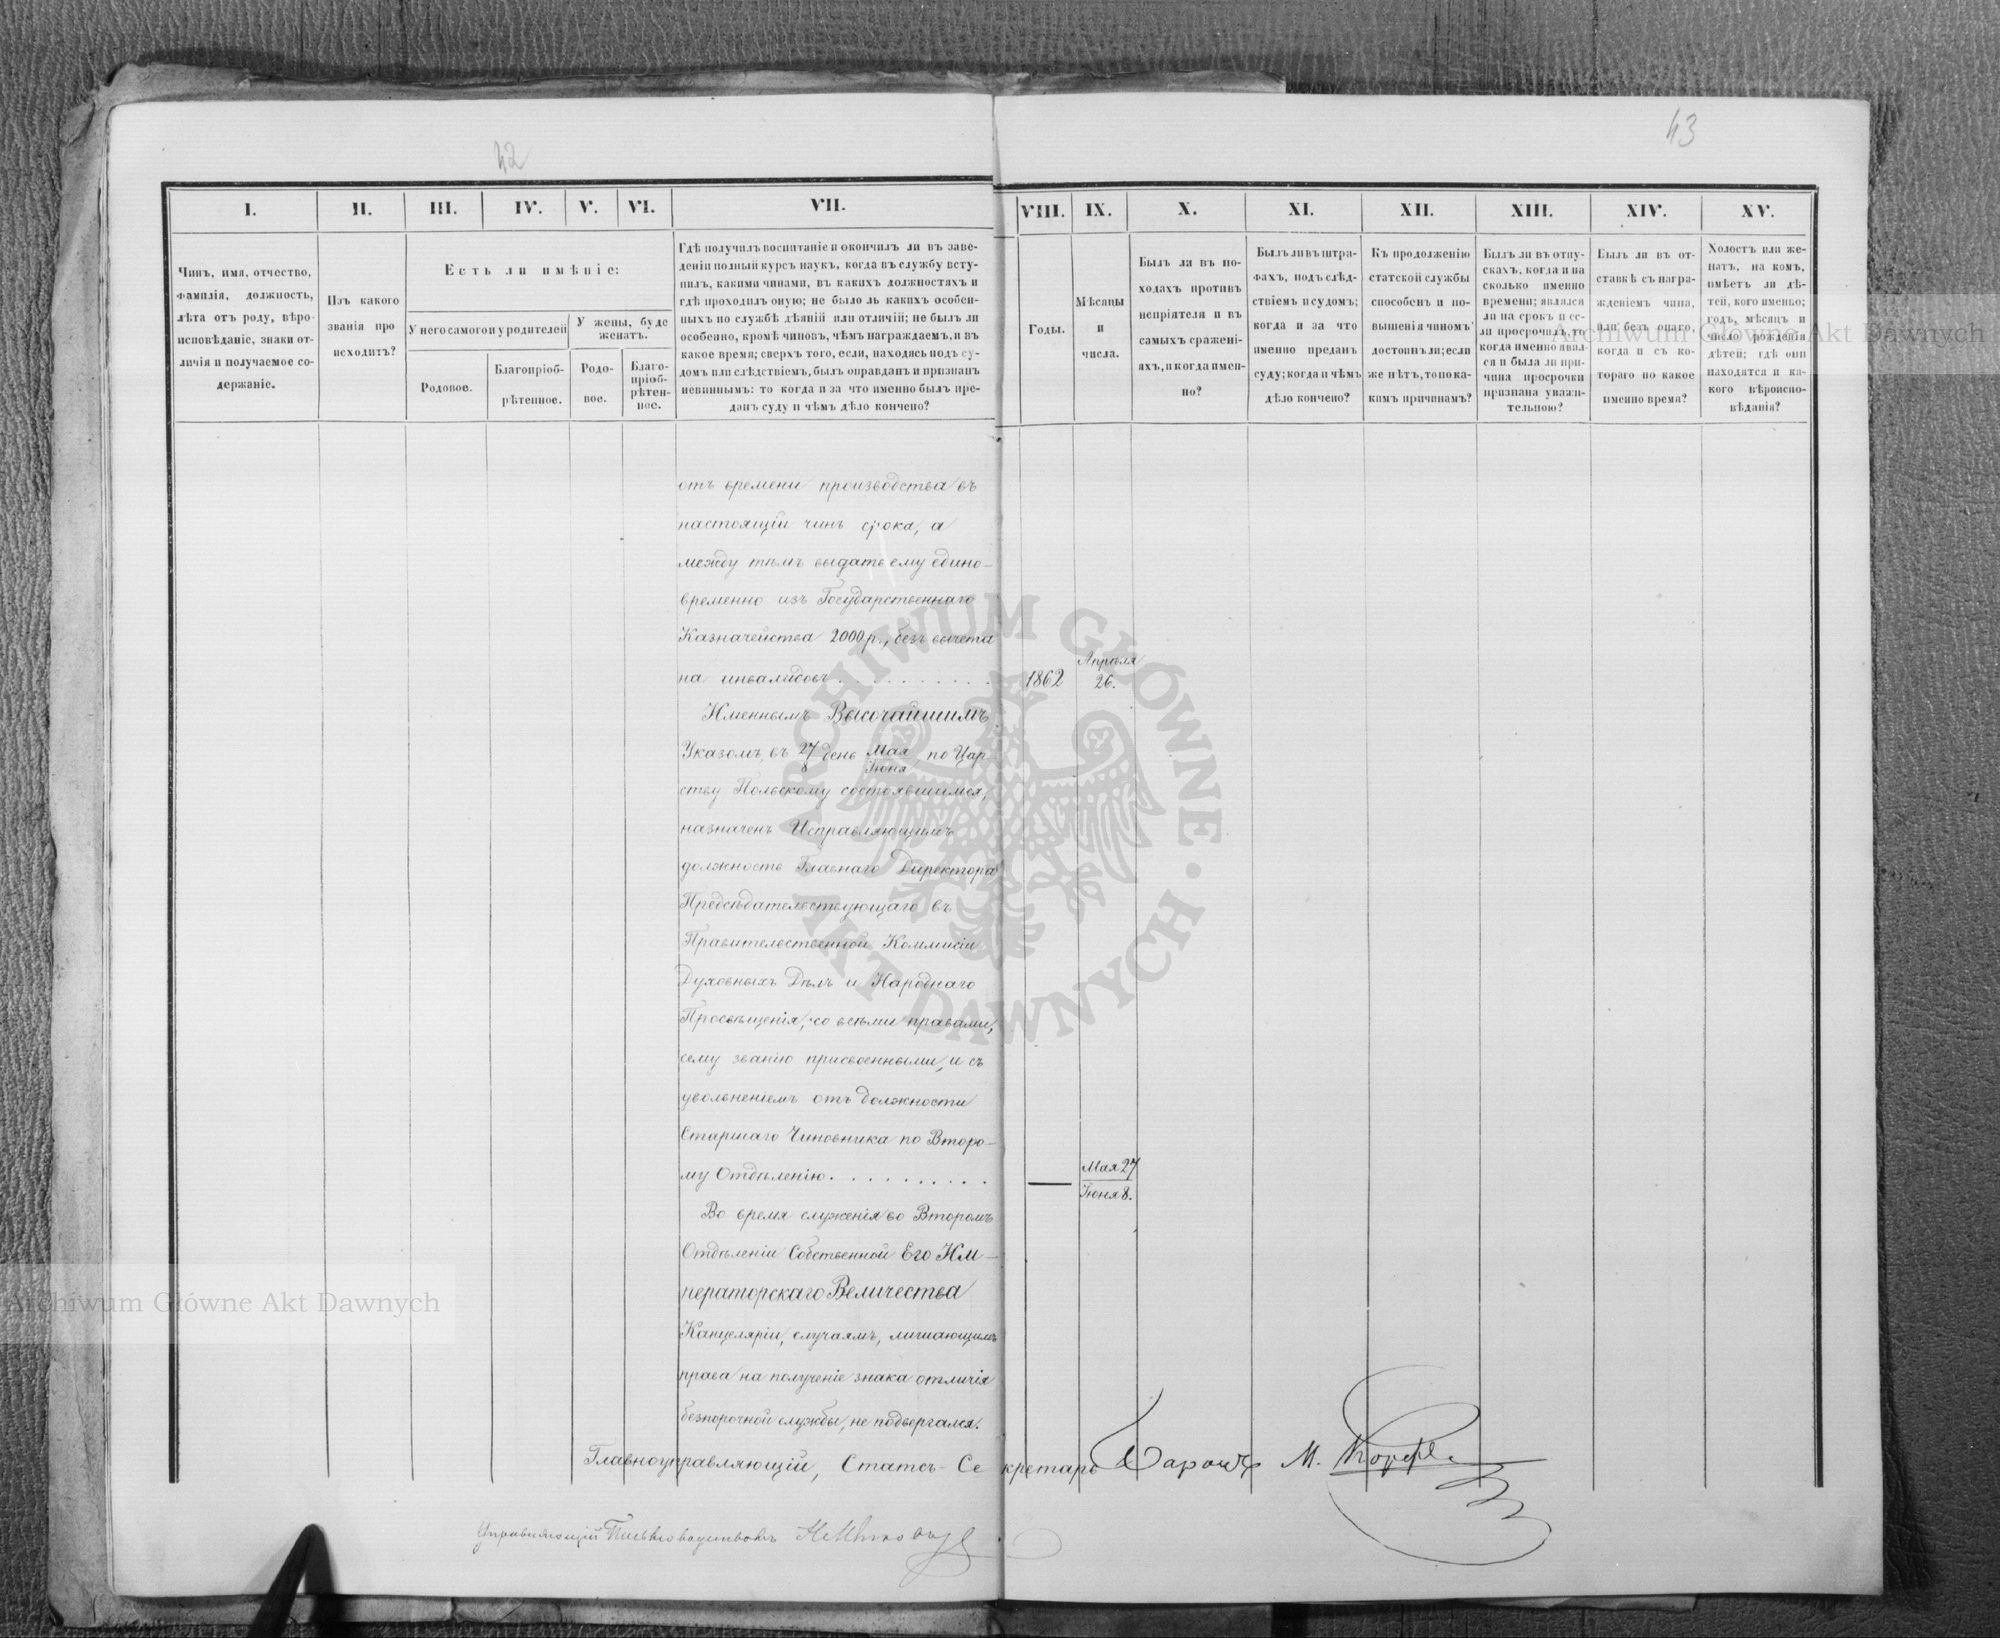 42
43
I.
II.
III.
IV.
V.
VI.
VII.
VIII.
IX.
X.
XI.
XII.
XIII.
XIV.
XV.
Чинъ, имя, отчество,
фамилія, должность,
лѣта отъ роду, вѣро-
исповѣданіе, знаки от-
личія и получаемое со-
держаніе.
Изъ какого
званія про
исходитъ?
Есть ли имѣніе:
У него самого и у родителей
У жены, буде
женатъ.
Родовое.
Благопріоб-
рѣтенное.
Родо-
вое.
Благо-
пріоб-
рѣтен-
ное.
Гдѣ получилъ воспитаніе и окончилъ ли въ заве-
деніи полный курсъ наукъ, когда въ службу всту-
пилъ, какими чинами, въ какихъ должностяхъ и
гдѣ проходилъ оную; не было ль какихъ особен-
ныхъ по службѣ дѣяній или отличій; не былъ ли
особенно, кромѣ чиновъ, чѣмъ награждаемъ, и въ
какое время; сверхъ того, если, находясь подъ су-
домъ или слѣдствіемъ, былъ оправданъ и признанъ
невиннымъ: то когда и за что именно былъ пре-
данъ суду и чѣмъ дѣло кончено?
Годы.
Мѣсяцы
и
числа.
Былъ ли въ по-
ходахъ противъ
непріятеля и въ
самыхъ сражені-
яхъ, и когда имен-
но?
Былъ ли въ штра-
фахъ, подъ слѣд-
ствіемъ и судомъ;
когда и за что
именно преданъ
суду; когда и чѣмъ
дѣло кончено?
Къ продолженію
статской службы
способенъ и по-
вышенія чиномъ
достоинъ ли; если
же нѣтъ, то по ка-
кимъ причинамъ?
Былъ ли въ отпу-
скахъ, когда и на
сколько именно
времени; явился
ли на срокъ и ес-
ли просрочилъ, то
когда именно явил-
ся и была ли при-
чина просрочки
признана уважи-
тельною?
Былъ ли въ от-
ставкѣ съ награ-
жденіемъ чина,
или безъ онаго,
когда и съ ко-
тораго по какое
именно время?
Холостъ или же-
натъ, на комъ,
имѣетъ ли дѣ-
тей, кого именно;
годъ, мѣсяцъ и
число рожденія
дѣтей; гдѣ они
находятся и ка-
кого вѣроиспо-
вѣданія?
отъ времени производства въ
настоящій чинъ срока, а
между тѣмъ выдать ему едино-
временно изъ Государственнаго
Казначейства 2000 р., безъ вычета
на инвалидовъ . . . . . . . . . .
1862
Апрѣля
26.
Именнымъ Высочайшимъ
Указомъ, въ 27/8 день Мая/Іюня по Цар-
ству Польскому состоявшимся,
назначенъ Исправляющимъ
должность Главнаго Директора
Предсѣдательствующаго въ
Правительственной Коммисіи
Духовныхъ Дѣлъ и Народнаго
Просвѣщенія, со всѣми правами,
сему званію присвоенными, и съ
увольненіемъ отъ должности
Старшаго Чиновника по Второ-
му Отдѣленію . . . . . . . . . .
—
Мая 27
Іюня 8.
Во время служенія во Второмъ
Отдѣленіи Собственной Его Им-
ператорскаго Величества
Канцеляріи, случаямъ, лишающимъ
права на полученіе знака отличія
безпорочной службы, не подвергался.
Главноуправляющій, Статсъ-Секретарь Баронъ М. Корфъ
Управляющій Письмоводствомъ
Archiwum Główne Akt Dawnych
Archiwum Główne Akt Dawnych
ARCHIWUM GŁÓWNE · AKT DAWNYCH ·